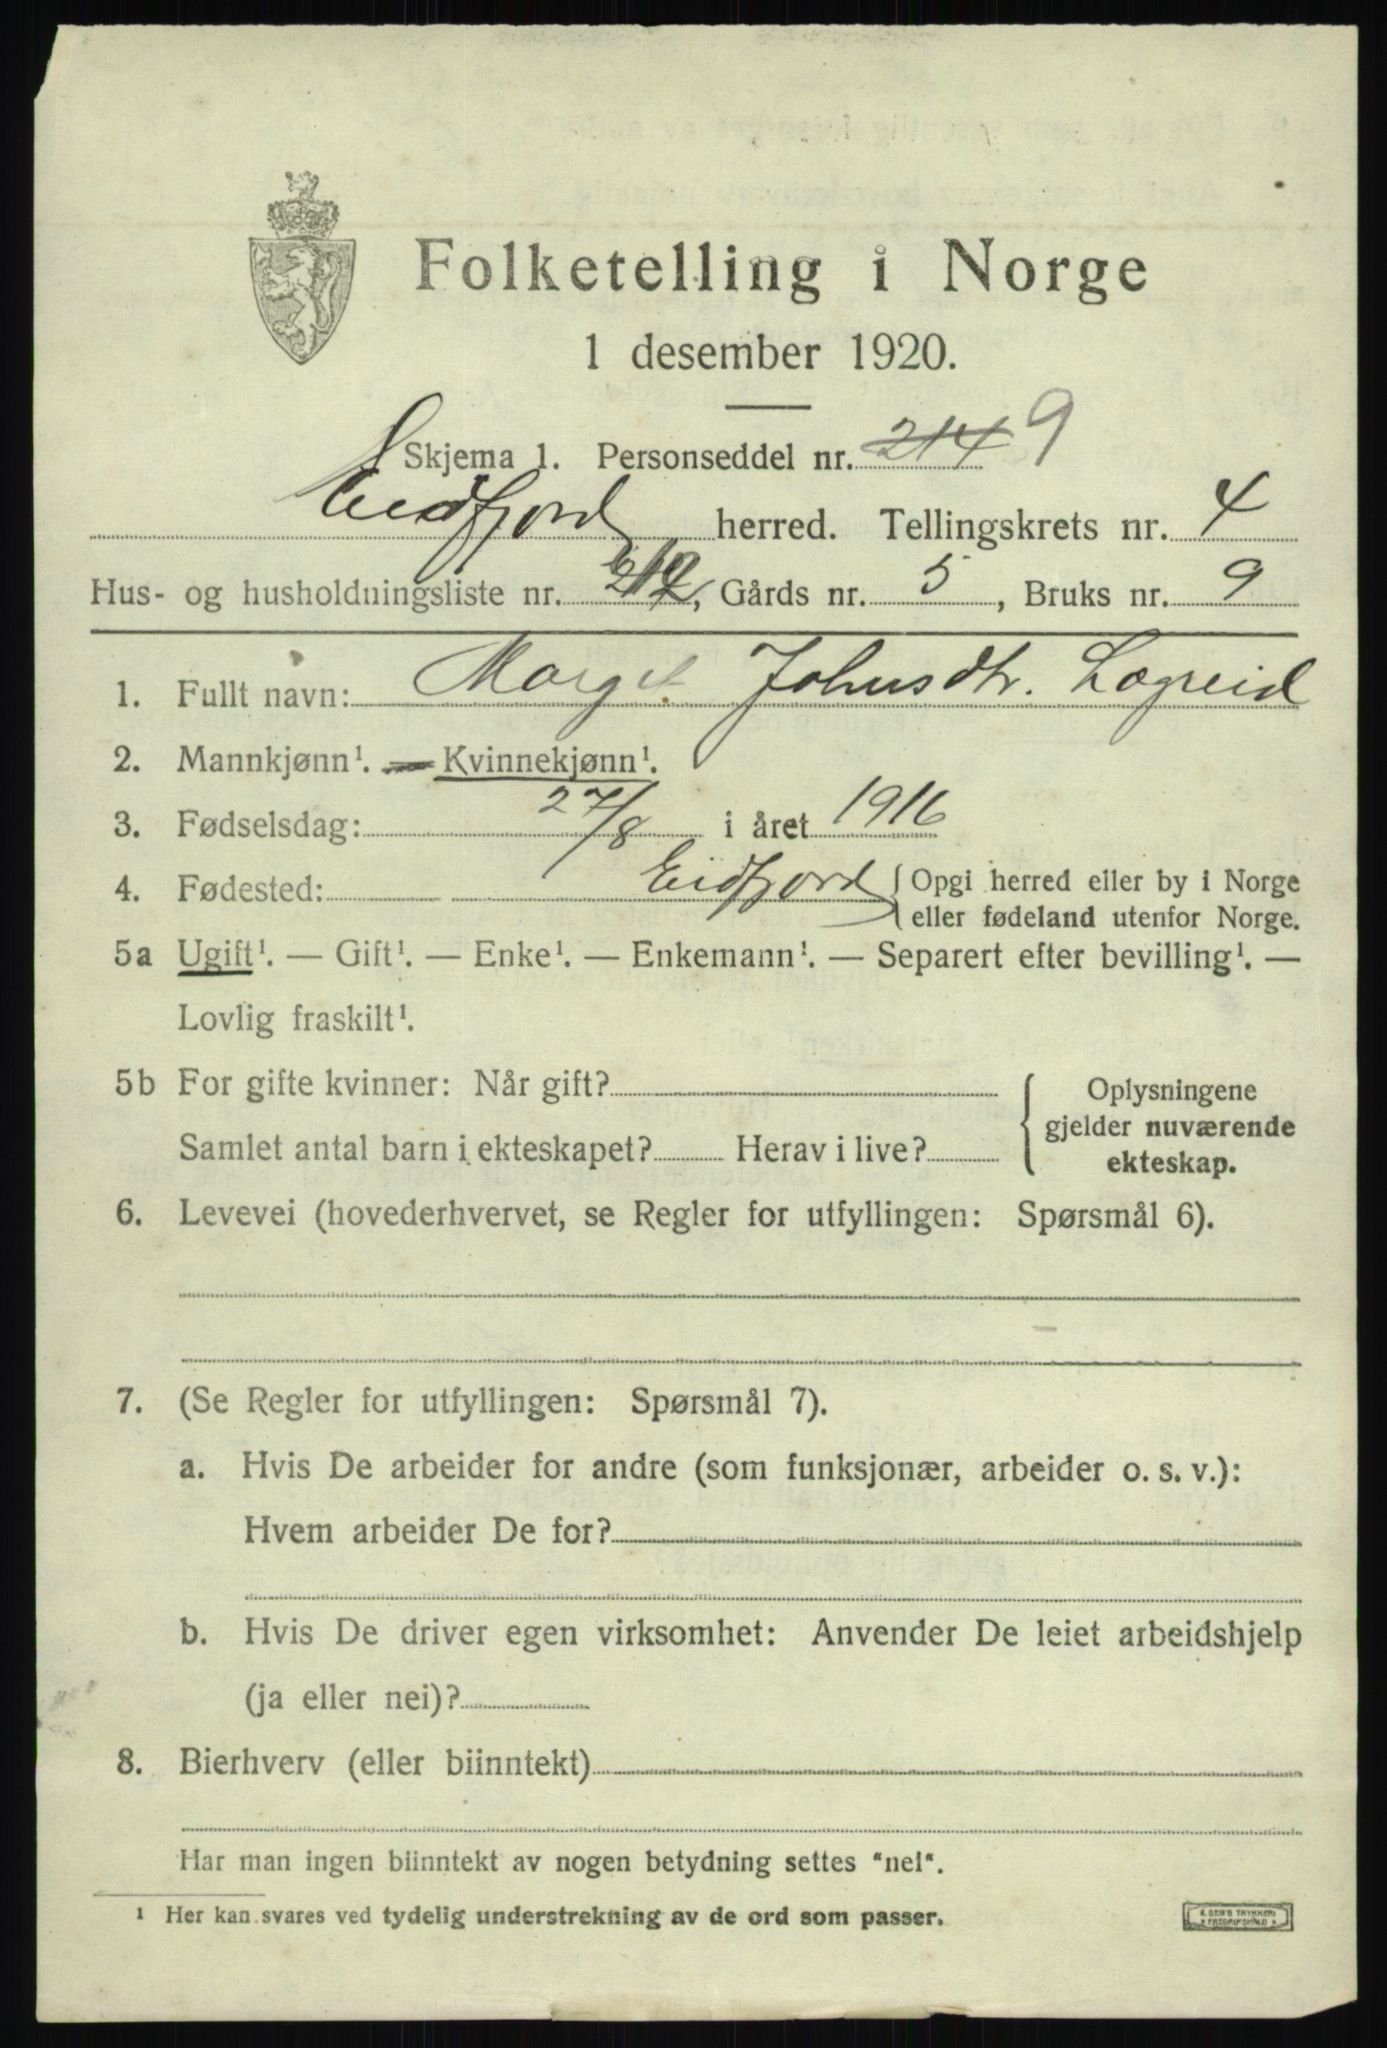 Folketelling i Norge
1 desember 1920.
Skjema 1. Personseddel nr. 214 9
Eidfjord herred. Tellingskrets nr. 4
Hus- og husholdningsliste nr. , Gårds nr. 5, Bruks nr. 9
1. Fullt navn: Marget Johnsdtr. Lægreid
2. Mannkjønn¹. — Kvinnekjønn¹.
3. Fødselsdag: 27/8 i året 1916
4. Fødested: Eidfjord { Opgi herred eller by i Norge
eller fødeland utenfor Norge.
5a Ugift¹. — Gift¹. — Enke¹. — Enkemann¹. — Separert efter bevilling¹. —
Lovlig fraskilt¹.
5b For gifte kvinner: Når gift? { Oplysningene
gjelder nuværende
Samlet antal barn i ekteskapet? Herav i live? ekteskap.
6. Levevei (hovederhvervet, se Regler for utfyllingen: Spørsmål 6).
7. (Se Regler for utfyllingen: Spørsmål 7).
a. Hvis De arbeider for andre (som funksjonær, arbeider o. s. v.):
Hvem arbeider De for?
b. Hvis De driver egen virksomhet: Anvender De leiet arbeidshjelp
(ja eller nei)?
8. Bierhverv (eller biinntekt)
Har man ingen biinntekt av nogen betydning settes "nei".
¹ Her kan svares ved tydelig understrekning av de ord som passer.